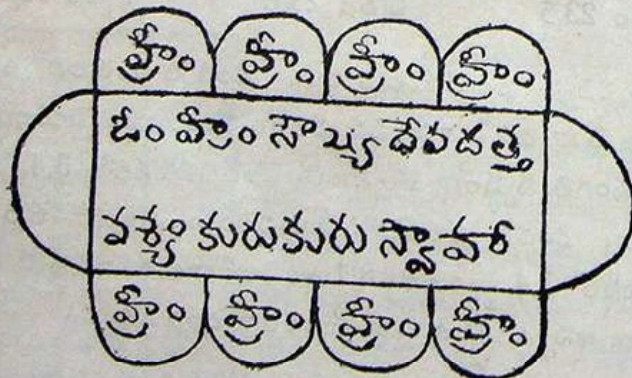 హ్రీం హ్రీం హ్రీం హ్రీం
ఓం హ్రీం సౌఖ్య దేవదత్త
వశ్యం కురుకురు స్వాహా
హ్రీం హ్రీం హ్రీం హ్రీం